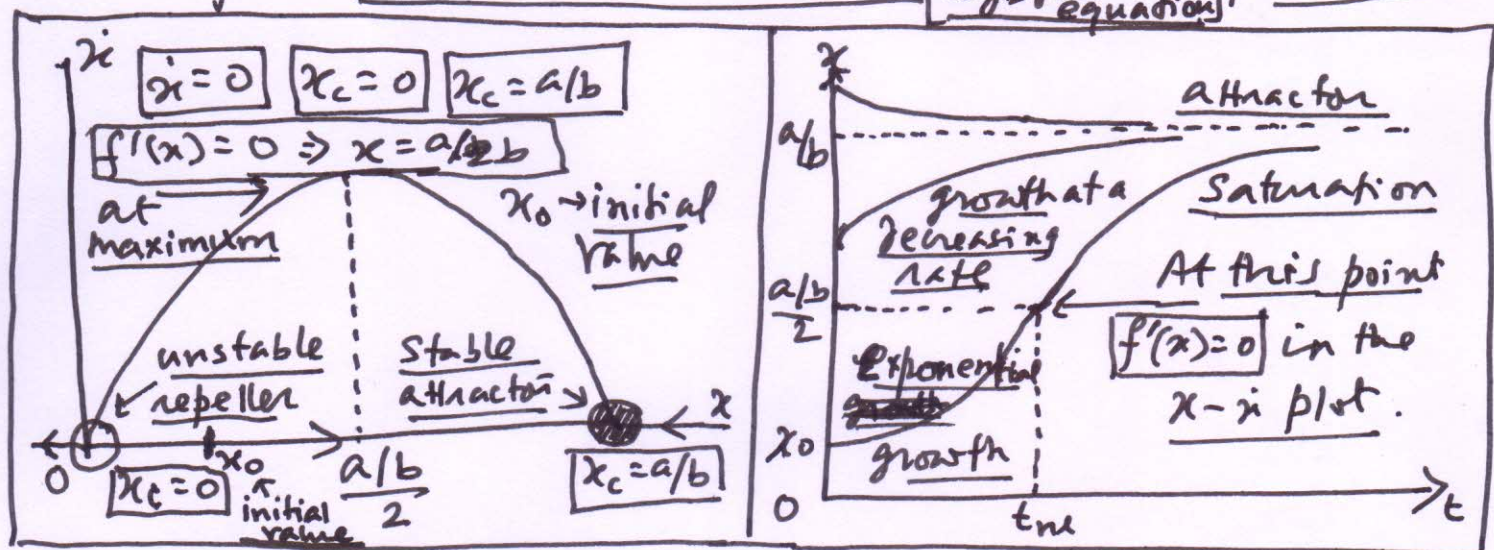 equations.
ẋ
ẋ = 0
x_c = 0
x_c = a/b
f'(x) = 0 ⇒ x = a/2b
at
maximum
x₀ → initial
value
unstable
repeller
stable
attractor
x
0
x₀
a/b
2
x_c = 0
initial
value
x_c = a/b
x
attractor
a/b
growth at a
decreasing
rate
Saturation
a/b
2
At this point
f'(x)=0 in the
x-ẋ plot.
Exponential
growth
x₀
0
t_nl
t